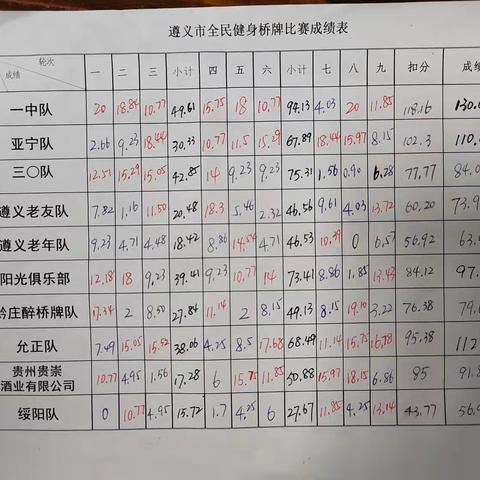 遵义市全民健身桥牌比赛成绩表
轮次 成绩 一 二 三 小计 四 五 六 小计 七 八 九 扣分 成绩
一中队 20 18.84 10.77 49.61 15.75 18 10.77 94.13 4.03 20 11.85 118.16 130.
亚宁队 2.66 9.23 18.44 30.33 10.77 11.5 15.29 67.89 18.44 15.97 8.15 102.3 110.
三〇队 12.51 15.29 15.05 42.85 14 9.23 9.23 75.31 1.56 0.90 6.28 77.77 84.0
遵义老友队 7.82 1.16 11.50 20.48 18.3 5.46 2.32 46.56 9.61 4.03 13.72 60.20 73.9
遵义老年队 9.23 4.71 4.48 18.42 8.86 14.54 4.71 46.53 10.39 0 6.57 56.92 63.
阳光俱乐部 12.18 18 9.23 39.41 9.23 10.77 14 73.41 8.86 1.85 13.43 84.12 97.
庄醉桥牌队 17.34 2 8.50 27.84 11.14 2 8.15 49.13 8.15 19.10 3.22 76.38 79.
允正队 7.49 15.05 15.52 38.06 4.25 8.5 17.68 68.49 11.14 15.75 16.78 95.38 112
贵州贵崇
酒业有限公司 10.77 4.95 1.56 17.28 6 15.75 11.85 50.88 15.97 18.15 6.86 85 91.8
绥阳队 0 10.77 4.95 15.72 1.7 4.25 6 27.67 11.85 4.25 13.14 43.77 56.